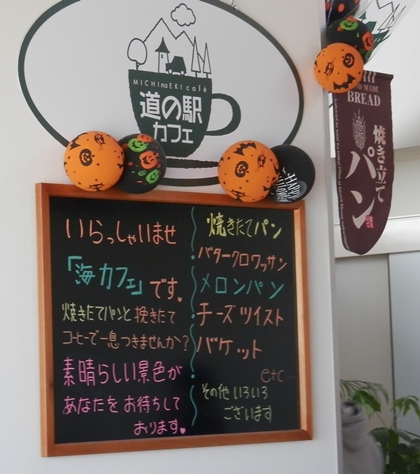 MICHInoEKI café
道の駅
カフェ
いらっしゃいませ
「海カフェ」です。
焼きたてパンと挽きたて
コーヒーで一息つきませんか?
素晴らしい景色が
あなたをお待ちして
おります。
焼きたてパン
バタークロワッサン
メロンパン
チーズツイスト
バケット
etc
その他いろいろ
ございます
MADE
BREAD
焼き立て
パン